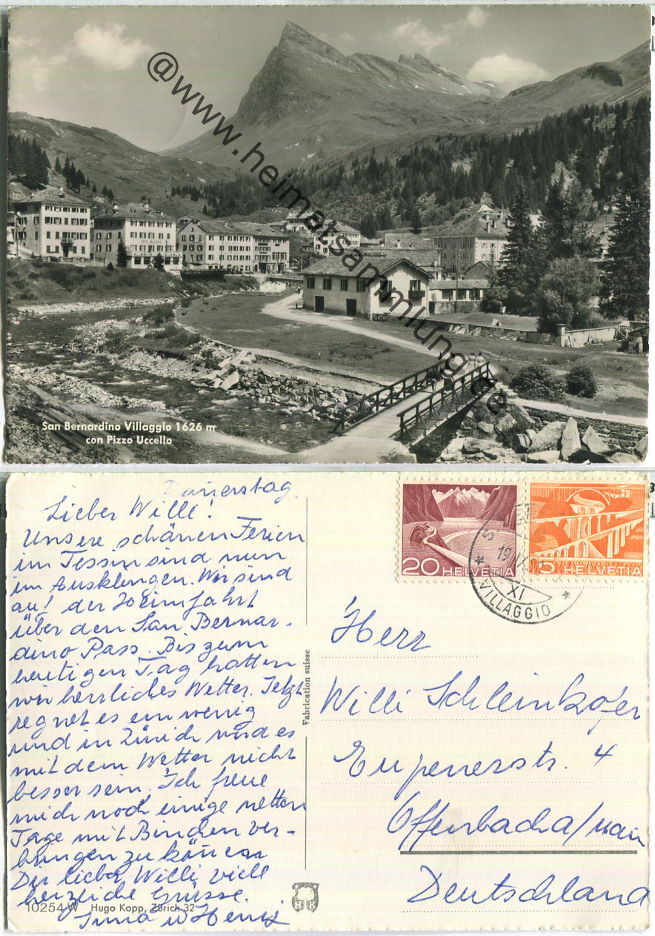 @www.heimatsammlung.de
San Bernardino Villaggio 1626 m
con Pizzo Uccello
Donnerstag
Lieber Willi!
Unsere schönen Ferien
im Tessin sind nun
im Ausklengen. Wir sind
auf der Heimfahrt
über den San Bernar-
dino Pass. Bis zum
heutigen Tag hatten
wir herrliches Wetter. Jetzt
regnet es ein wenig
und in Zürich wird es
mit dem Wetter nicht
besser sein. Ich freue
mich noch einige netten
Tage mit Binden ver-
bringen zu können
Dir lieber Willi viele
herzliche Grüsse.
10254 W Hugo Kopp, Zürich 32
HK
Fabrication suisse
20 HELVETIA
5 HELVETIA
XI
VILLAGGIO
Herr
Willi Schleinkofer
Eupenerstr. 4
Offenbach a/main
Deutschland